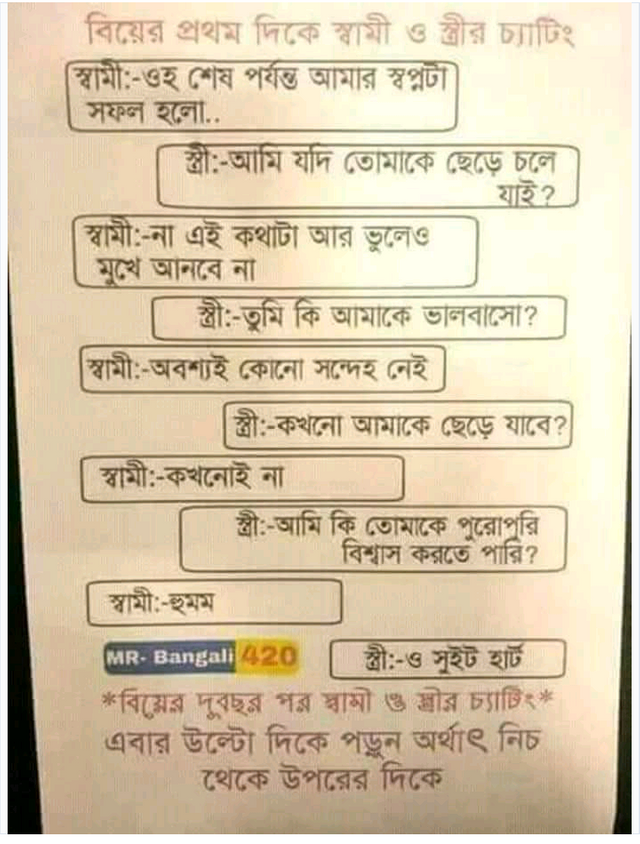 বিয়ের প্রথম দিকে স্বামী ও স্ত্রীর চ্যাটিং
স্বামী:-ওহ শেষ পর্যন্ত আমার স্বপ্নটা
সফল হলো..
স্ত্রী:-আমি যদি তোমাকে ছেড়ে চলে
যাই?
স্বামী:-না এই কথাটা আর ভুলেও
মুখে আনবে না
স্ত্রী:-তুমি কি আমাকে ভালবাসো?
স্বামী:-অবশ্যই কোনো সন্দেহ নেই
স্ত্রী:-কখনো আমাকে ছেড়ে যাবে?
স্বামী:-কখনোই না
স্ত্রী:-আমি কি তোমাকে পুরোপুরি
বিশ্বাস করতে পারি?
স্বামী:-হুমম
MR- Bangali 420
স্ত্রী:-ও সুইট হার্ট
*বিয়ের দুবছর পর স্বামী ও স্ত্রীর চ্যাটিং*
এবার উল্টো দিকে পড়ুন অর্থাৎ নিচ
থেকে উপরের দিকে